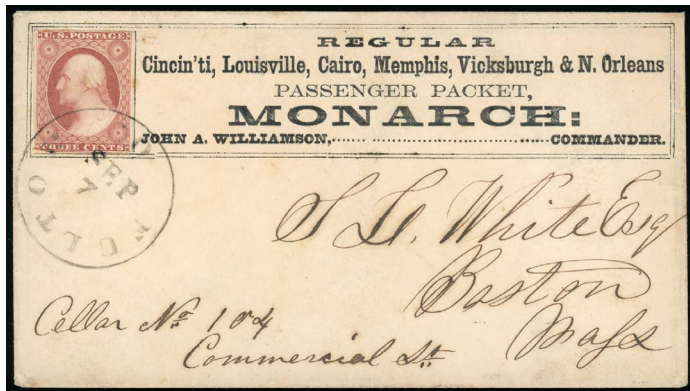 U.S. POSTAGE
THREE CENTS
REGULAR
Cincin'ti, Louisville, Cairo, Memphis, Vicksburgh & N. Orleans
PASSENGER PACKET,
MONARCH:
JOHN A. WILLIAMSON,........................................COMMANDER.
FULTO
SEP
7
White Esq
Boston
Mass
Cellar No. 104
Commercial St